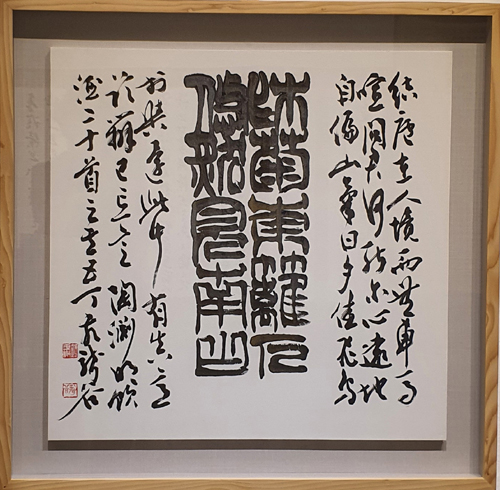 結廬在人境而無車馬
喧問君何能爾心遠地
自偏山氣日夕佳飛鳥
採菊東籬下
悠然見南山
相與還此中有真意
欲辯已忘言 陶淵明飲
酒二十首之其五 丁亥